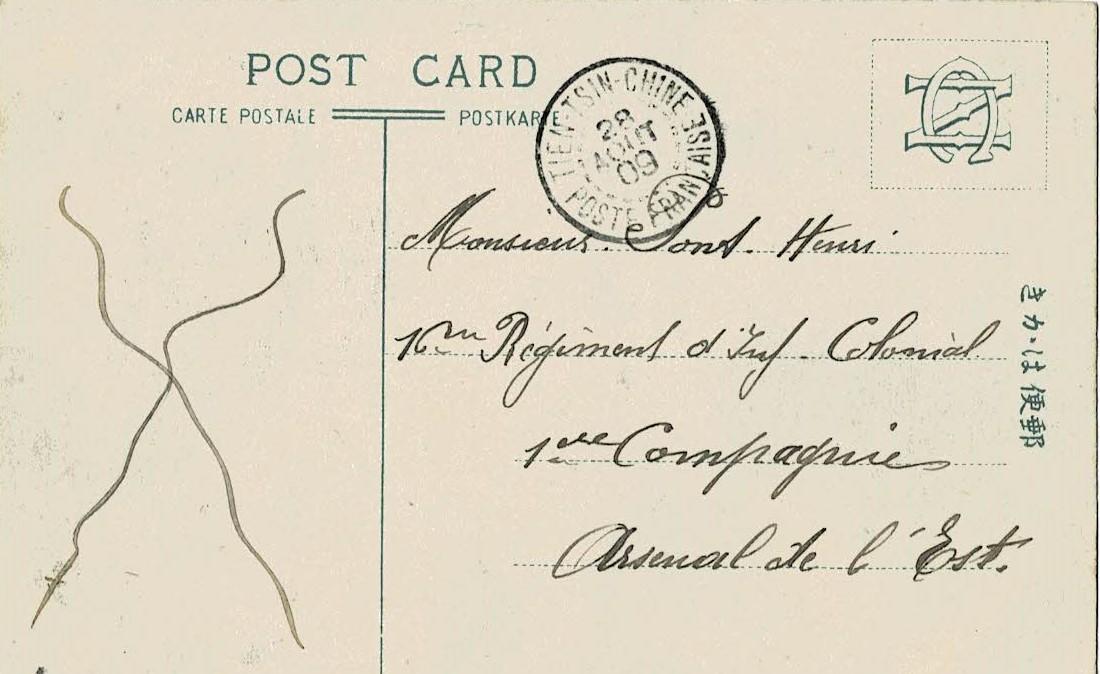 POST CARD
CARTE POSTALE POSTKARTE
TIEN-TSIN-CHINE
28
AOUT
09
POSTE FRANÇAISE
Monsieur Pont Henri
16me Régiment d'Inf. Colonial
1ère Compagnie
Arsenal de l'Est.
きかは便郵